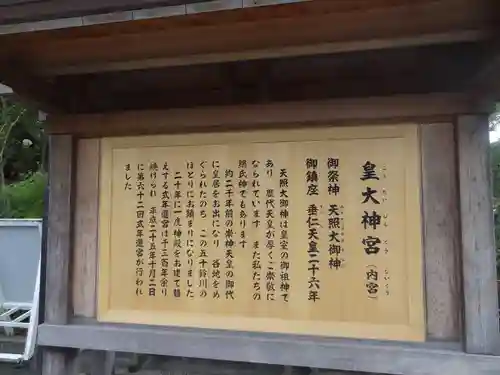 皇大神宮（内宮）
こうたいじんぐう　ないくう
御祭神　天照大御神
御鎮座　垂仁天皇二十六年
天照大御神は皇室の御祖神で
あり　歴代天皇が厚くご崇敬に
なられています　また私たちの
総氏神でもあります
約二千年前の崇神天皇の御代
に皇居をお出になり　各地をめ
ぐられたのち　この五十鈴川の
ほとりにお鎮まりになりました
二十年に一度神殿をお建て替
えする式年遷宮は千三百年余り
続けられ　平成二十五年十月二日
に第六十二回式年遷宮が行われ
ました